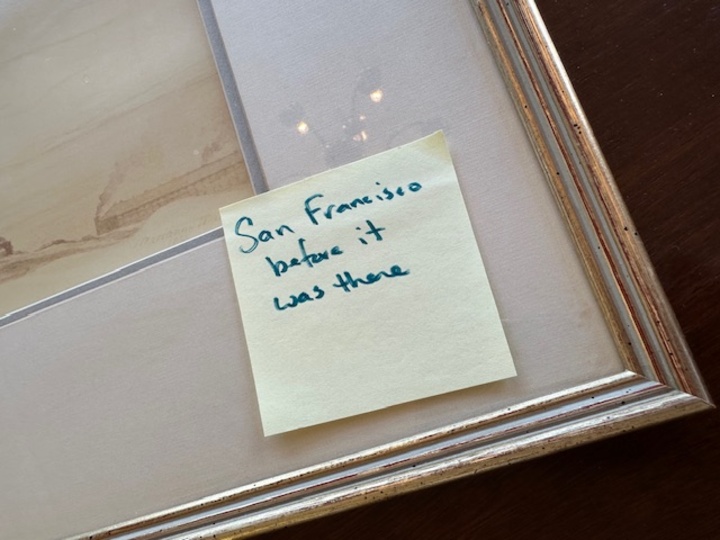 San Francisco
before it
was there